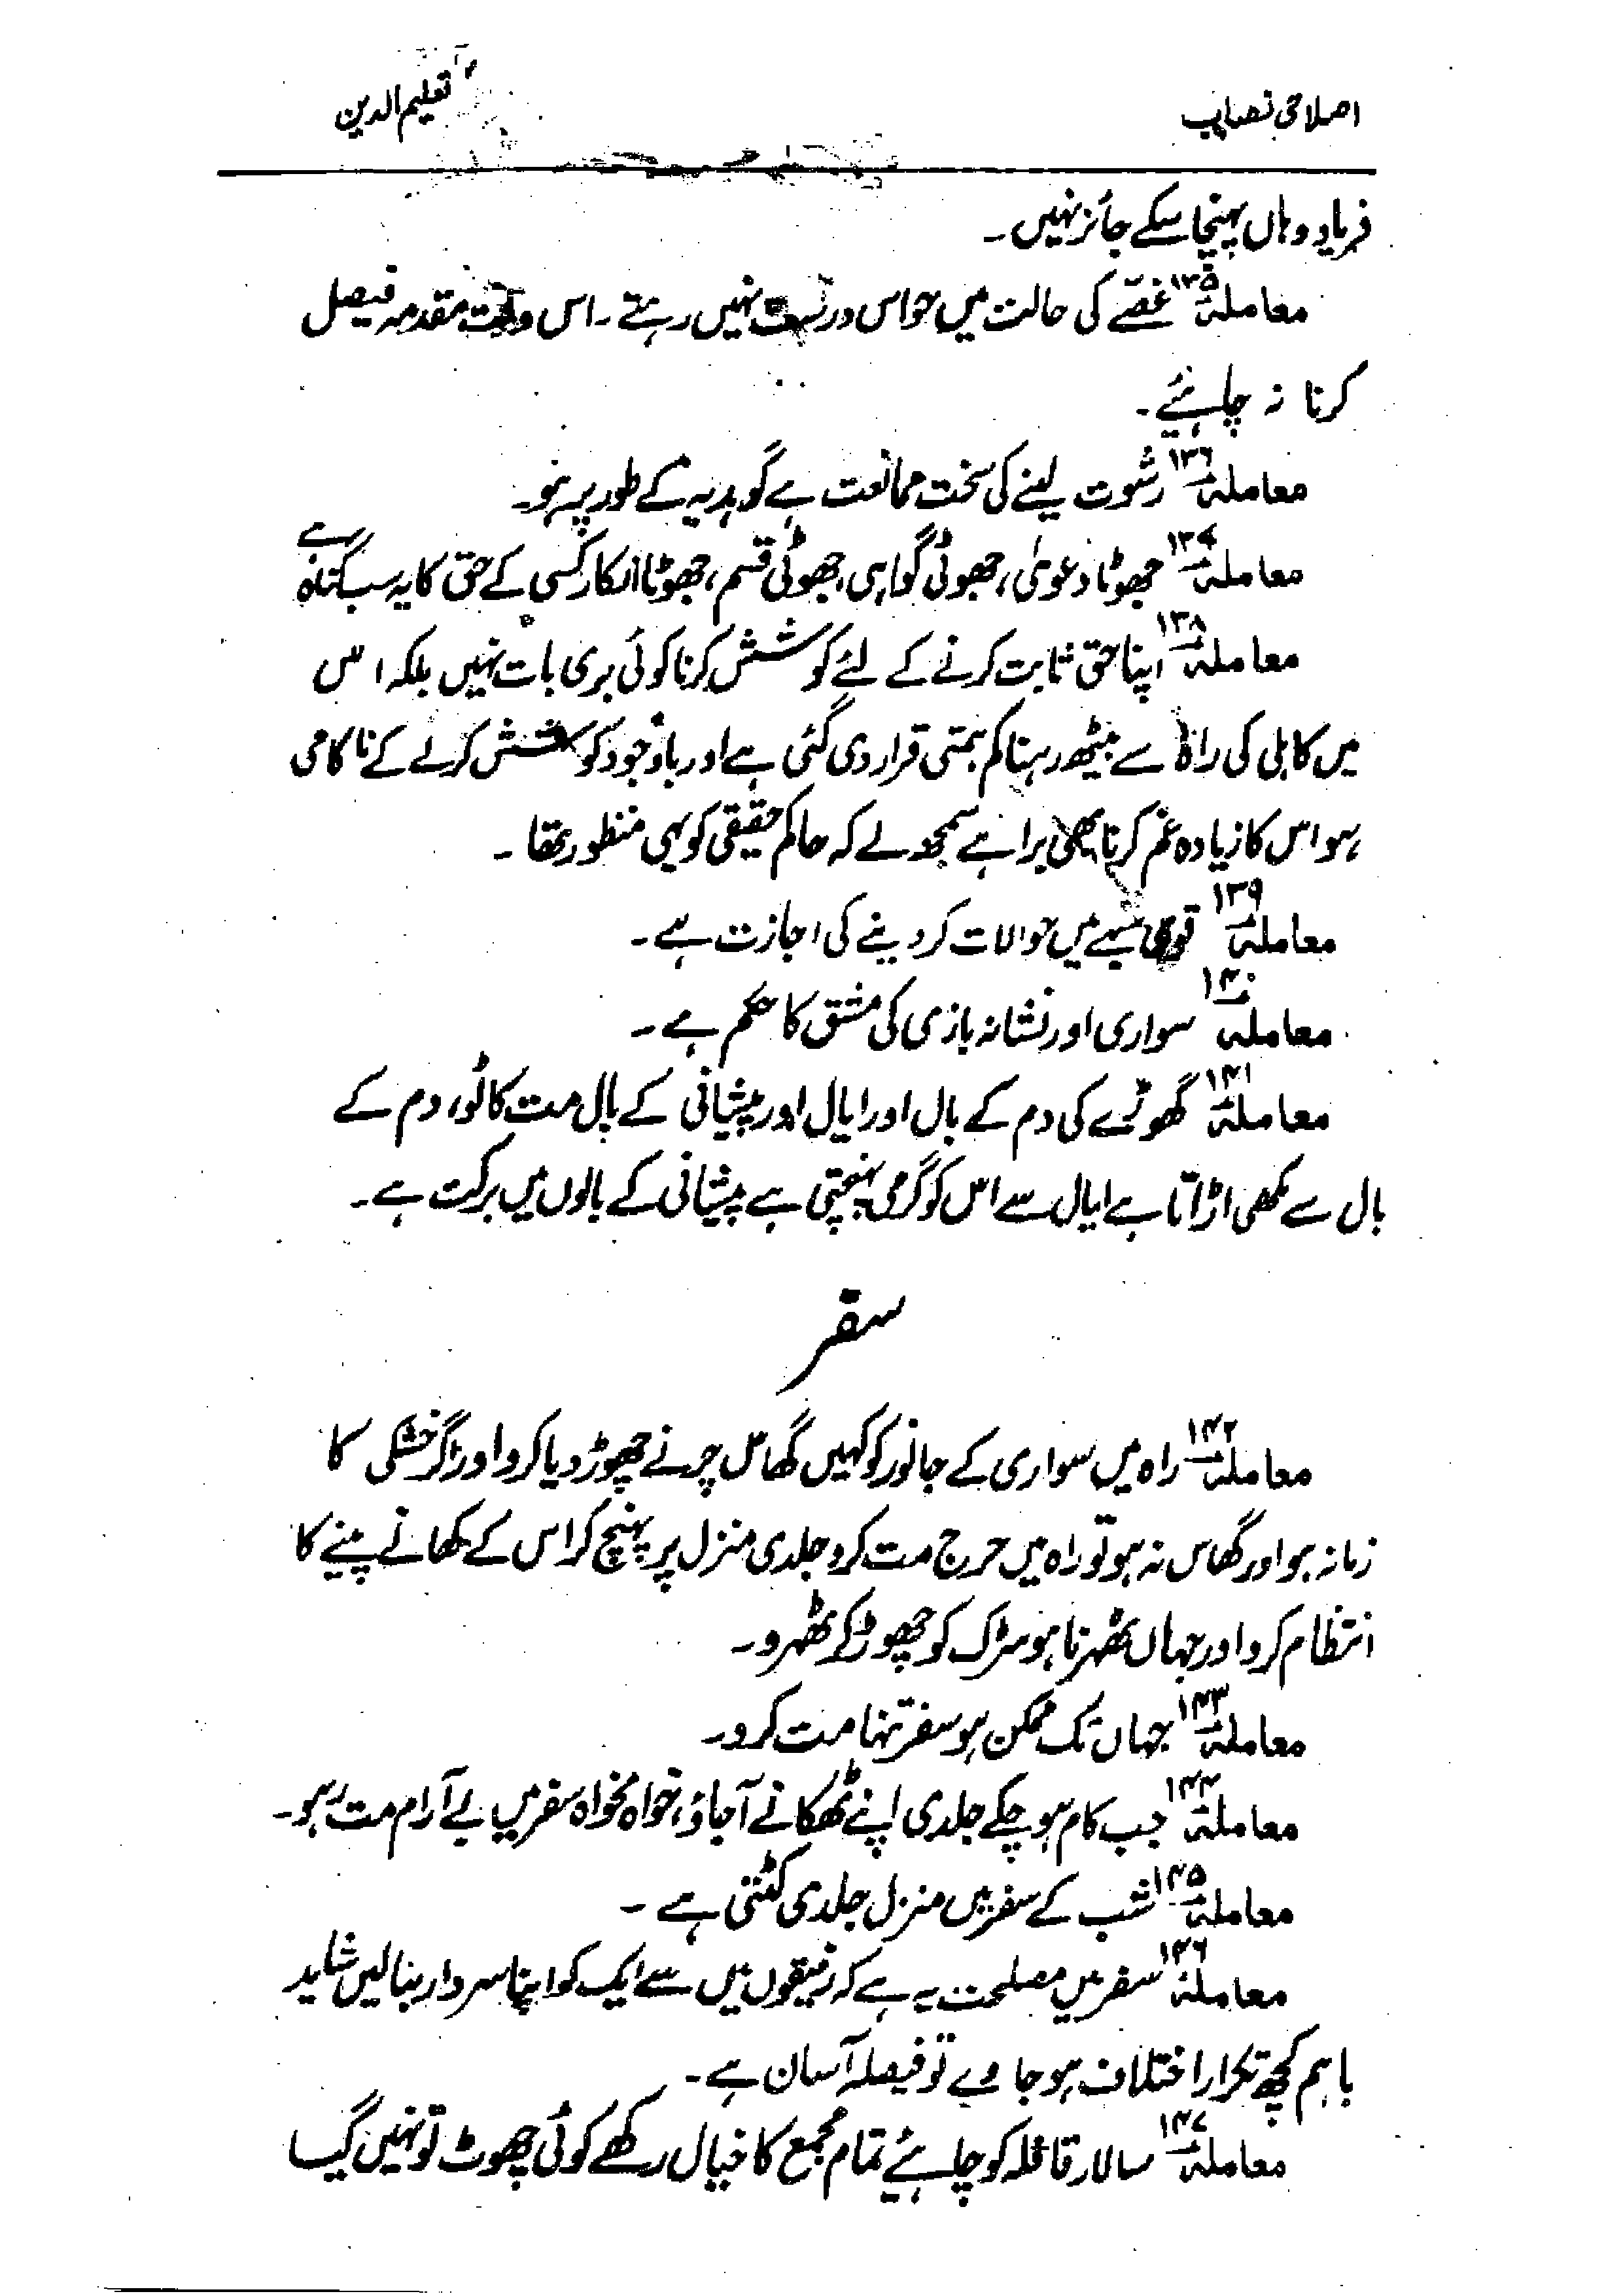 اصلاحی نصاب
تعلیم الدین
فریاد وہاں پہنچا سکے جائز نہیں۔
معاملہ ۱۳۵ غصے کی حالت میں حواس درست نہیں رہتے۔ اس وقت مقدمہ فیصل
کرنا نہ چاہئیے۔
معاملہ ۱۳۶ رشوت لینے کی سخت ممانعت ہے گو ہدیہ کے طور پر ہو۔
معاملہ ۱۳۷ جھوٹا دعویٰ، جھوٹی گواہی، جھوٹی قسم، جھوٹا انکار کسی کے حق کا یہ سب گناہ ہے
معاملہ ۱۳۸ اپنا حق ثابت کرنے کے لئے کوشش کرنا کوئی بری بات نہیں بلکہ اس
میں کاہلی کی راہ سے بیٹھ رہنا کم ہمتی قرار دی گئی ہے اور باوجود کوشش کرلے کے ناکامی
ہو اس کا زیادہ غم کرنا بھی برا ہے سمجھ لے کہ حاکم حقیقی کو یہی منظور تھا۔
معاملہ ۱۳۹ قوی شبہے میں حوالات کر دینے کی اجازت ہے۔
معاملہ ۱۴۰ سواری اور نشانہ بازی کی مشق کا حکم ہے۔
معاملہ ۱۴۱ گھوڑے کی دم کے بال اور ایال اور پیشانی کے بال مت کاٹو، دم کے
بال سے مکھی اڑاتا ہے ایال سے اس کو گرمی پہنچتی ہے پیشانی کے بالوں میں برکت ہے۔
سفر
معاملہ ۱۴۲ راہ میں سواری کے جانور کو کہیں گھاس چرنے چھوڑ دیا کرو اور اگر خشکی کا
زمانہ ہو اور گھاس نہ ہو تو راہ میں حرج مت کرو جلدی منزل پر پہنچ کر اس کے کھانے پینے کا
انتظام کرو اور جہاں ٹھہرنا ہو سڑک کو چھوڑ کر ٹھہرو۔
معاملہ ۱۴۳ جہاں تک ممکن ہو سفر تنہا مت کرو۔
معاملہ ۱۴۴ جب کام ہو چکے جلدی اپنے ٹھکانے آجاؤ، خواہ مخواہ سفر میں بے آرام مت رہو۔
معاملہ ۱۴۵ شب کے سفر میں منزل جلدی کٹتی ہے۔
معاملہ ۱۴۶ سفر میں مصلحت یہ ہے کہ رفیقوں میں سے ایک کو اپنا سردار بنالیں شاید
باہم کچھ تکرار اختلاف ہو جاوے تو فیصلہ آسان ہے۔
معاملہ ۱۴۷ سالار قافلہ کو چاہئیے تمام مجمع کا خیال رکھے کوئی چھوٹ تو نہیں گیا